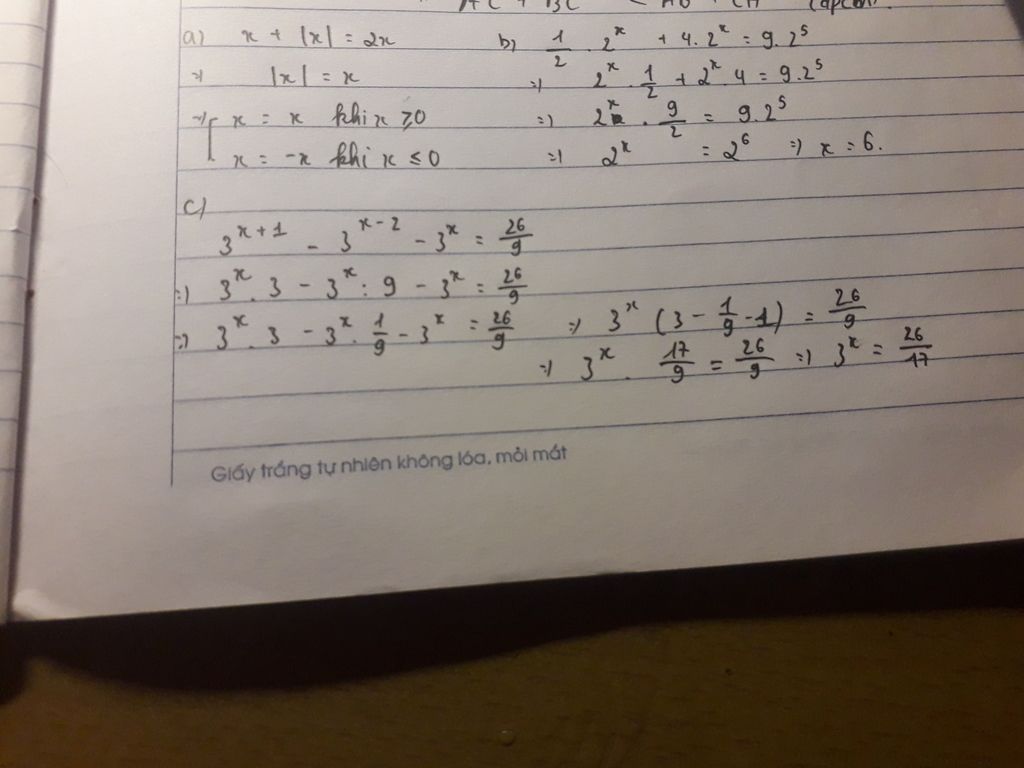 a) x + |x| = 2x
=> |x| = x
=> [ x = x khi x ≥ 0
x = -x khi x ≤ 0
b) 1/2 . 2^x + 4 . 2^x = 9 . 2^5
=> 2^x . 1/2 + 2^x . 4 = 9 . 2^5
=> 2^x . 9/2 = 9 . 2^5
=> 2^x = 2^6 => x = 6.
c)
3^(x+1) - 3^(x-2) - 3^x = 26/9
=> 3^x . 3 - 3^x : 9 - 3^x = 26/9
=> 3^x . 3 - 3^x . 1/9 - 3^x = 26/9 => 3^x (3 - 1/9 - 1) = 26/9
=> 3^x . 17/9 = 26/9 => 3^x = 26/17
Giấy trắng tự nhiên không lóa, mỏi mắt